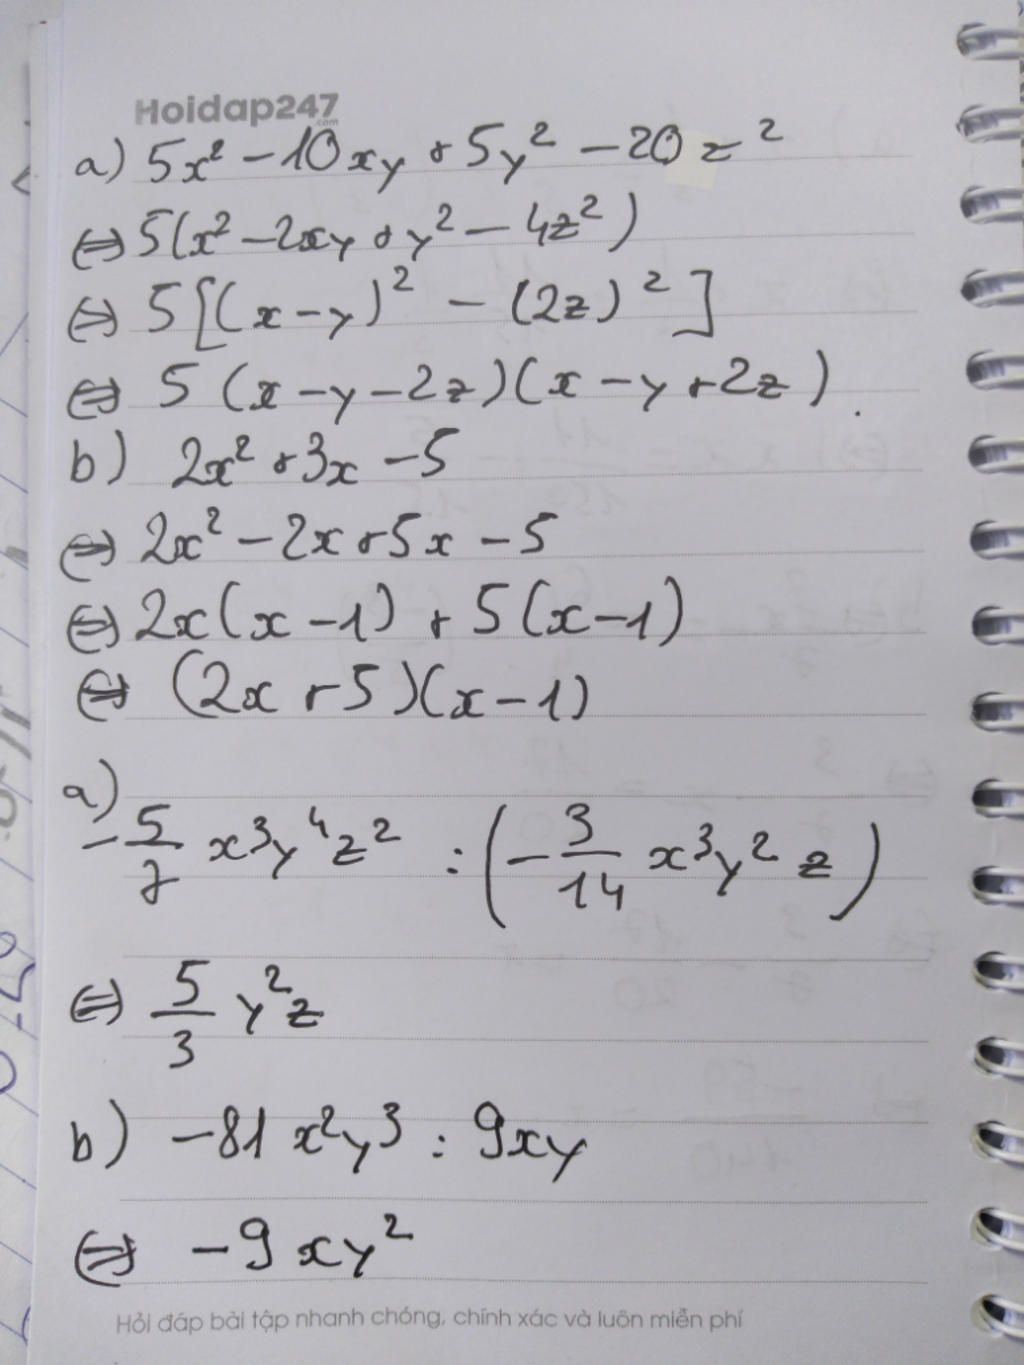 Hoidap247
.com
a) 5x² - 10xy + 5y² - 20z²
⇔ 5(x² - 2xy + y² - 4z²)
⇔ 5[(x - y)² - (2z)²]
⇔ 5(x - y - 2z)(x - y + 2z).
b) 2x² + 3x - 5
⇔ 2x² - 2x + 5x - 5
⇔ 2x(x - 1) + 5(x - 1)
⇔ (2x + 5)(x - 1)
a)
-5/7 x³y⁴z² : (-3/14 x³y²z)
⇔ 5/3 y²z
b) -81x²y³ : 9xy
⇔ -9xy²
Hỏi đáp bài tập nhanh chóng, chính xác và luôn miễn phí